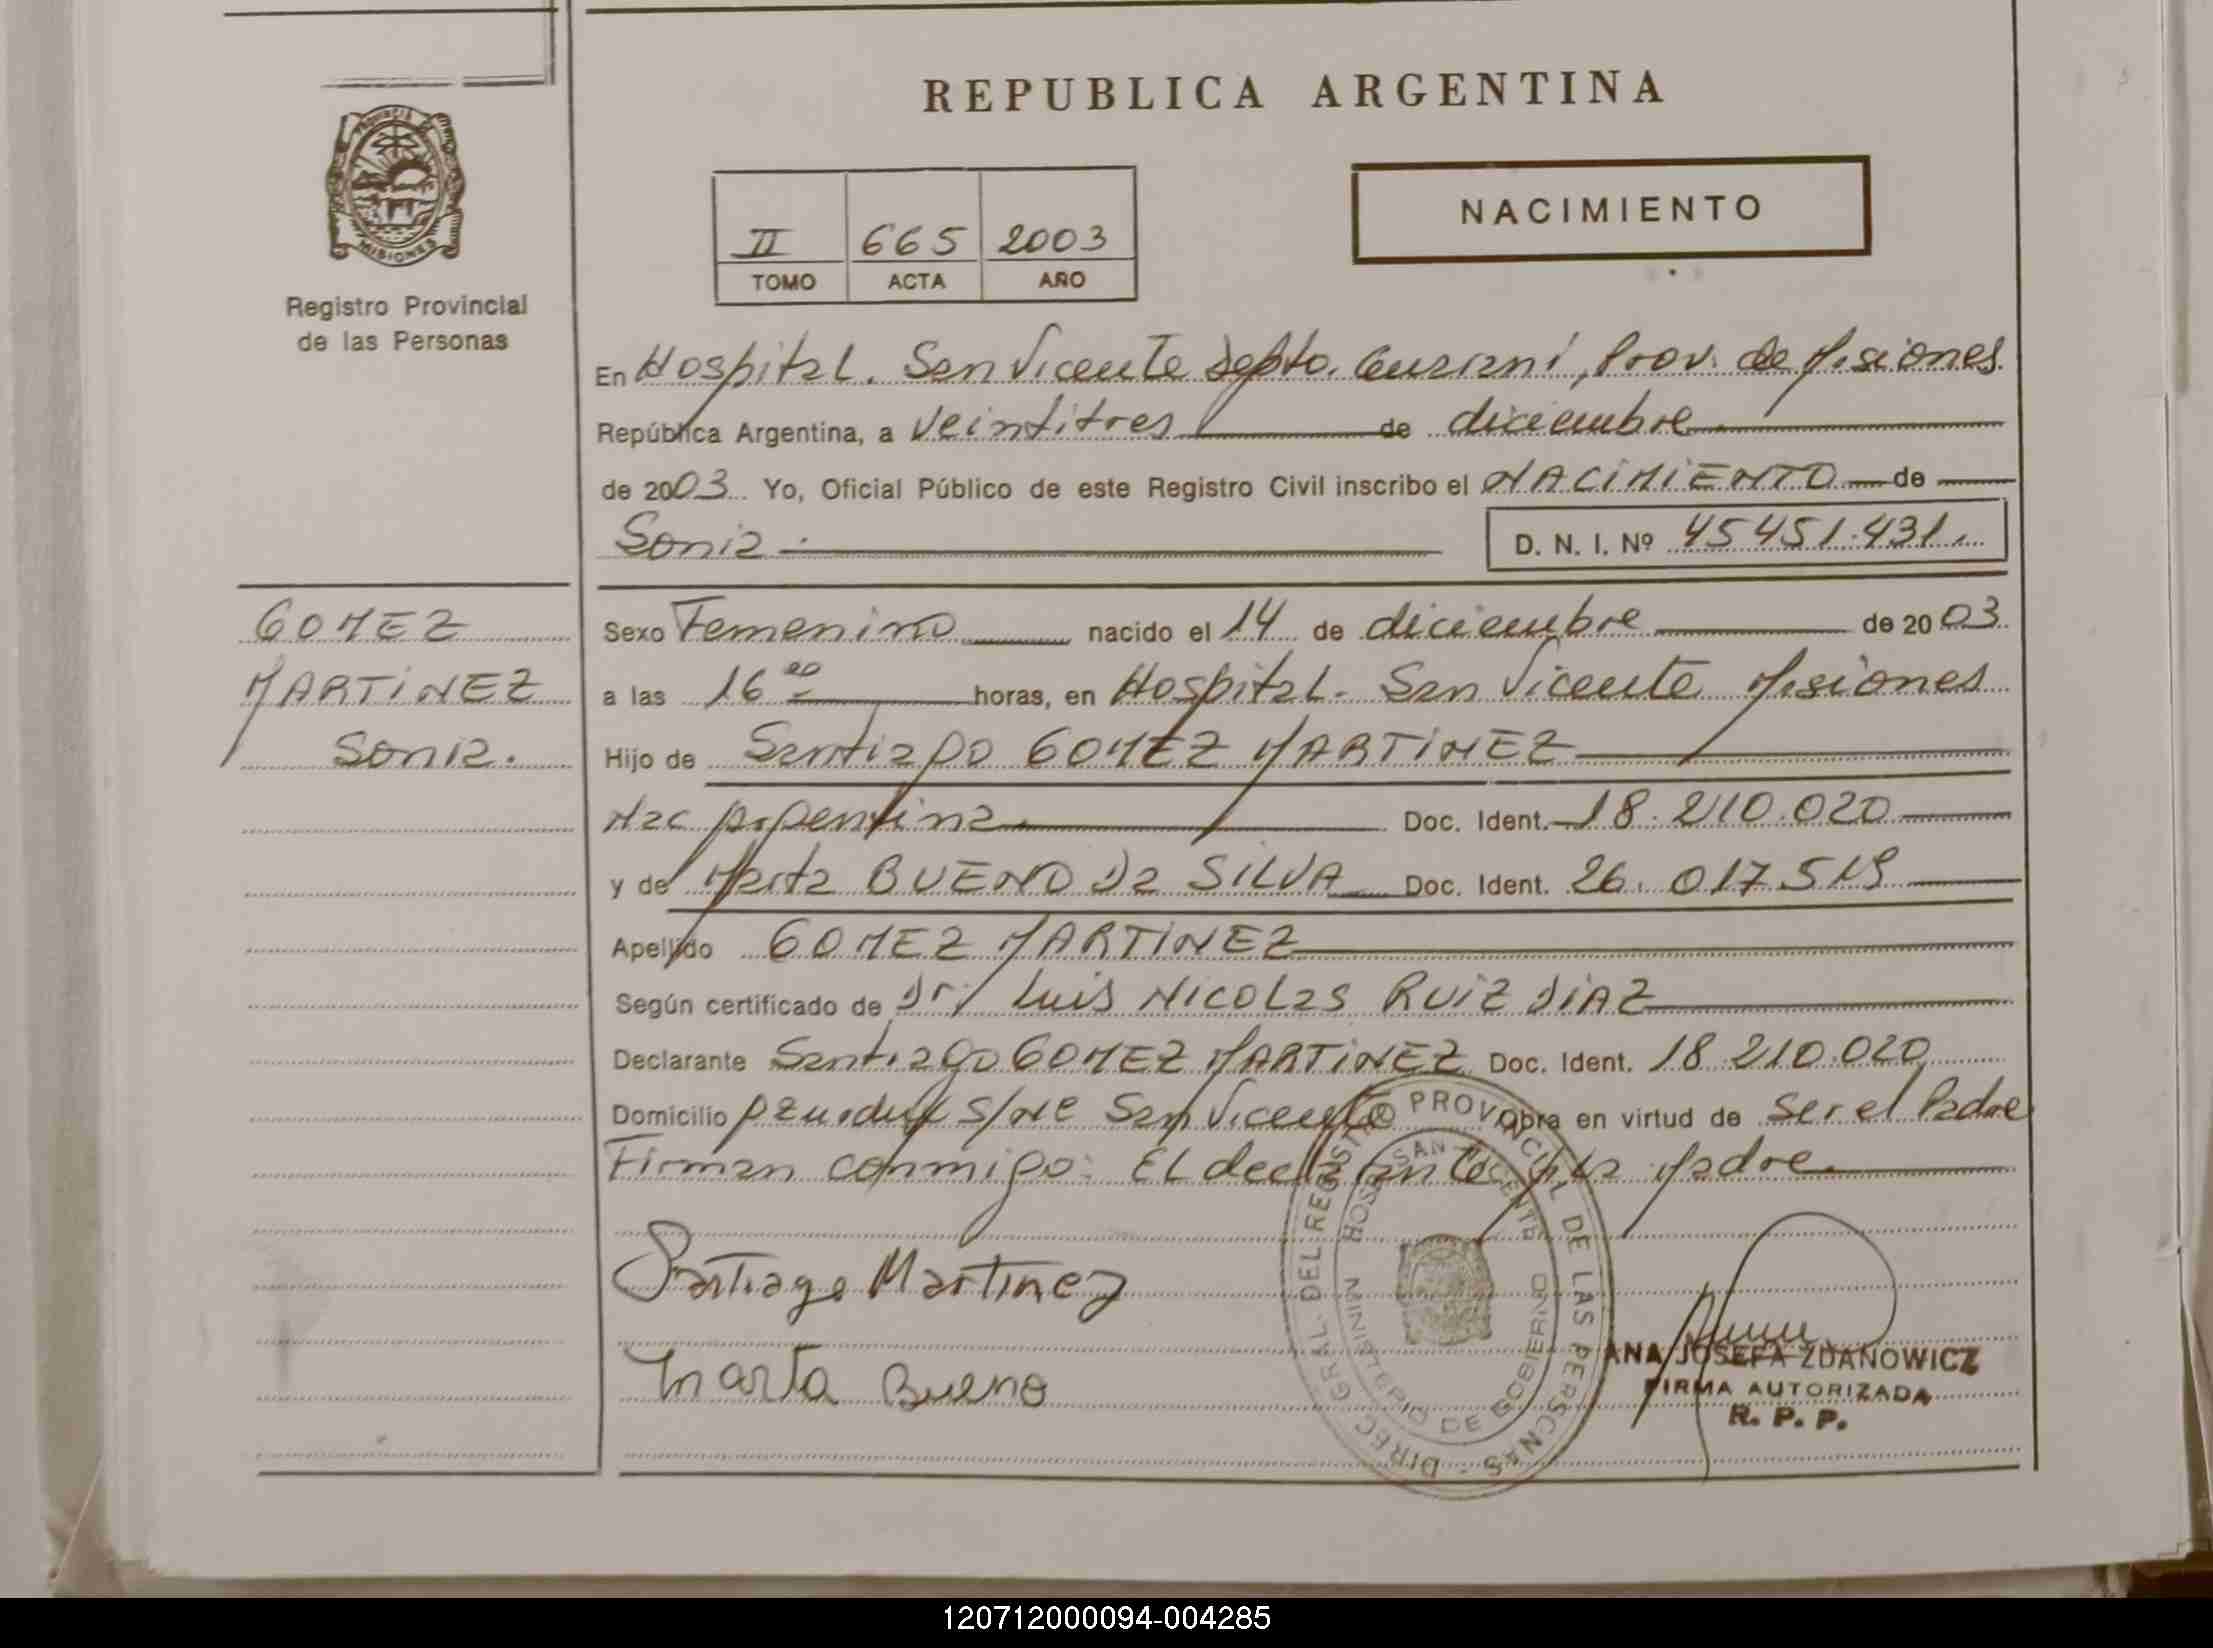 REPUBLICA ARGENTINA
PROVINCIA DE MISIONES
Registro Provincial
de las Personas
NACIMIENTO
II 665 2003
TOMO ACTA AÑO
En Hospital. San Vicente Depto. Guarani, Prov. de Misiones
República Argentina, a veintitres de diciembre
de 2003 Yo, Oficial Público de este Registro Civil inscribo el NACIMIENTO de
Sonia. D. N. I. Nº 45451.431.
GOMEZ
MARTINEZ
Sonia.
Sexo Femenino nacido el 14 de diciembre de 2003
a las 16 horas, en Hospital. San Vicente Misiones
Hijo de Santiago GOMEZ MARTINEZ
Nac Argentina. Doc. Ident. 18.210.020
y de Marta BUENO Da SILVA Doc. Ident. 26.017.519
Apellido GOMEZ MARTINEZ
Según certificado de Dr. Luis NICOLAS RUIZ DIAZ
Declarante Santiago GOMEZ MARTINEZ Doc. Ident. 18.210.020
Domicilio S/Nº San Vicente Obra en virtud de Ser el Padre
Firman conmigo: El declarante y la Madre.
Santiago Martinez
Marta Bueno
DIREC. GRAL. DEL REGISTRO PROVINCIAL DE LAS PERSONAS
HOSP. SAN VICENTE
MINISTERIO DE GOBIERNO
ANA JOSEFA ZDANOWICZ
FIRMA AUTORIZADA
R. P. P.
120712000094-004285